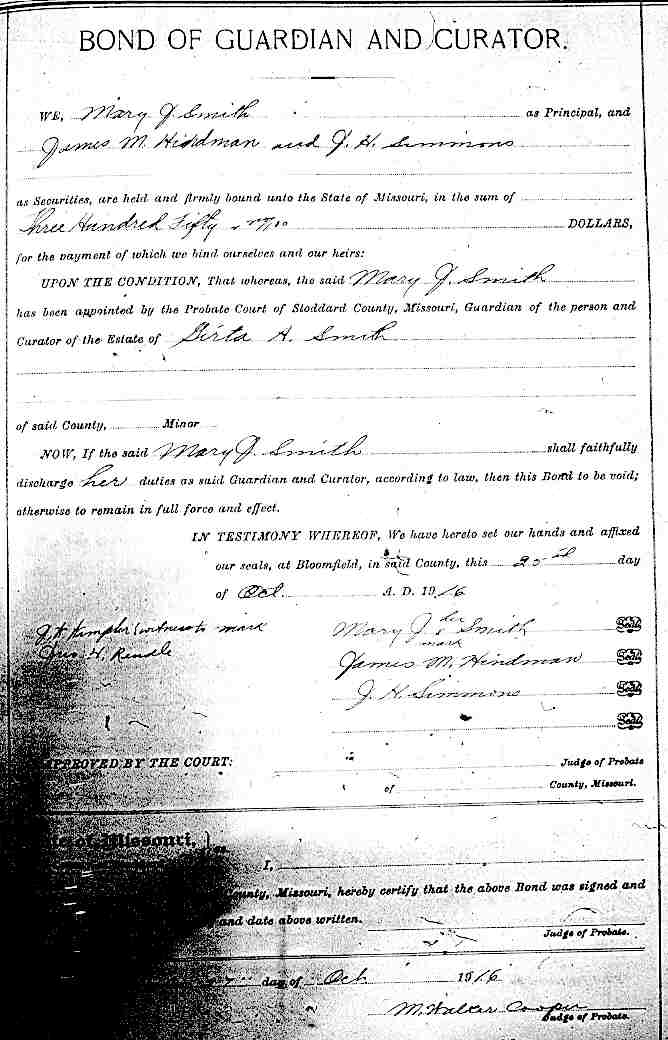 BOND OF GUARDIAN AND CURATOR.
WE, Mary J Smith as Principal, and
James M. Hindman and J. H. Simmons
as Securities, are held and firmly bound unto the State of Missouri, in the sum of
Three Hundred Fifty DOLLARS,
for the payment of which we bind ourselves and our heirs:
UPON THE CONDITION, That whereas, the said Mary J. Smith
has been appointed by the Probate Court of Stoddard County, Missouri, Guardian of the person and
Curator of the Estate of Girta A. Smith
of said County, Minor
NOW, If the said Mary J. Smith shall faithfully
discharge her duties as said Guardian and Curator, according to law, then this Bond to be void;
otherwise to remain in full force and effect.
IN TESTIMONY WHEREOF, We have hereto set our hands and affixed
our seals, at Bloomfield, in said County, this day
of Oct. A. D. 1916
witness to mark Mary J her Smith Seal
mark
James M. Hindman Seal
J. H. Simmons Seal
Seal
APPROVED BY THE COURT: Judge of Probate
of County, Missouri.
of Missouri, } ss.
I,
County, Missouri, hereby certify that the above Bond was signed and
and date above written.
Judge of Probate.
day of Oct 1916
M. Walker Cooper
Judge of Probate.